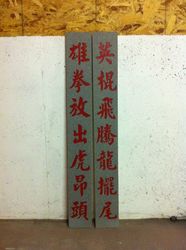 英棍飛騰龍擺尾
雄拳放出虎昂頭